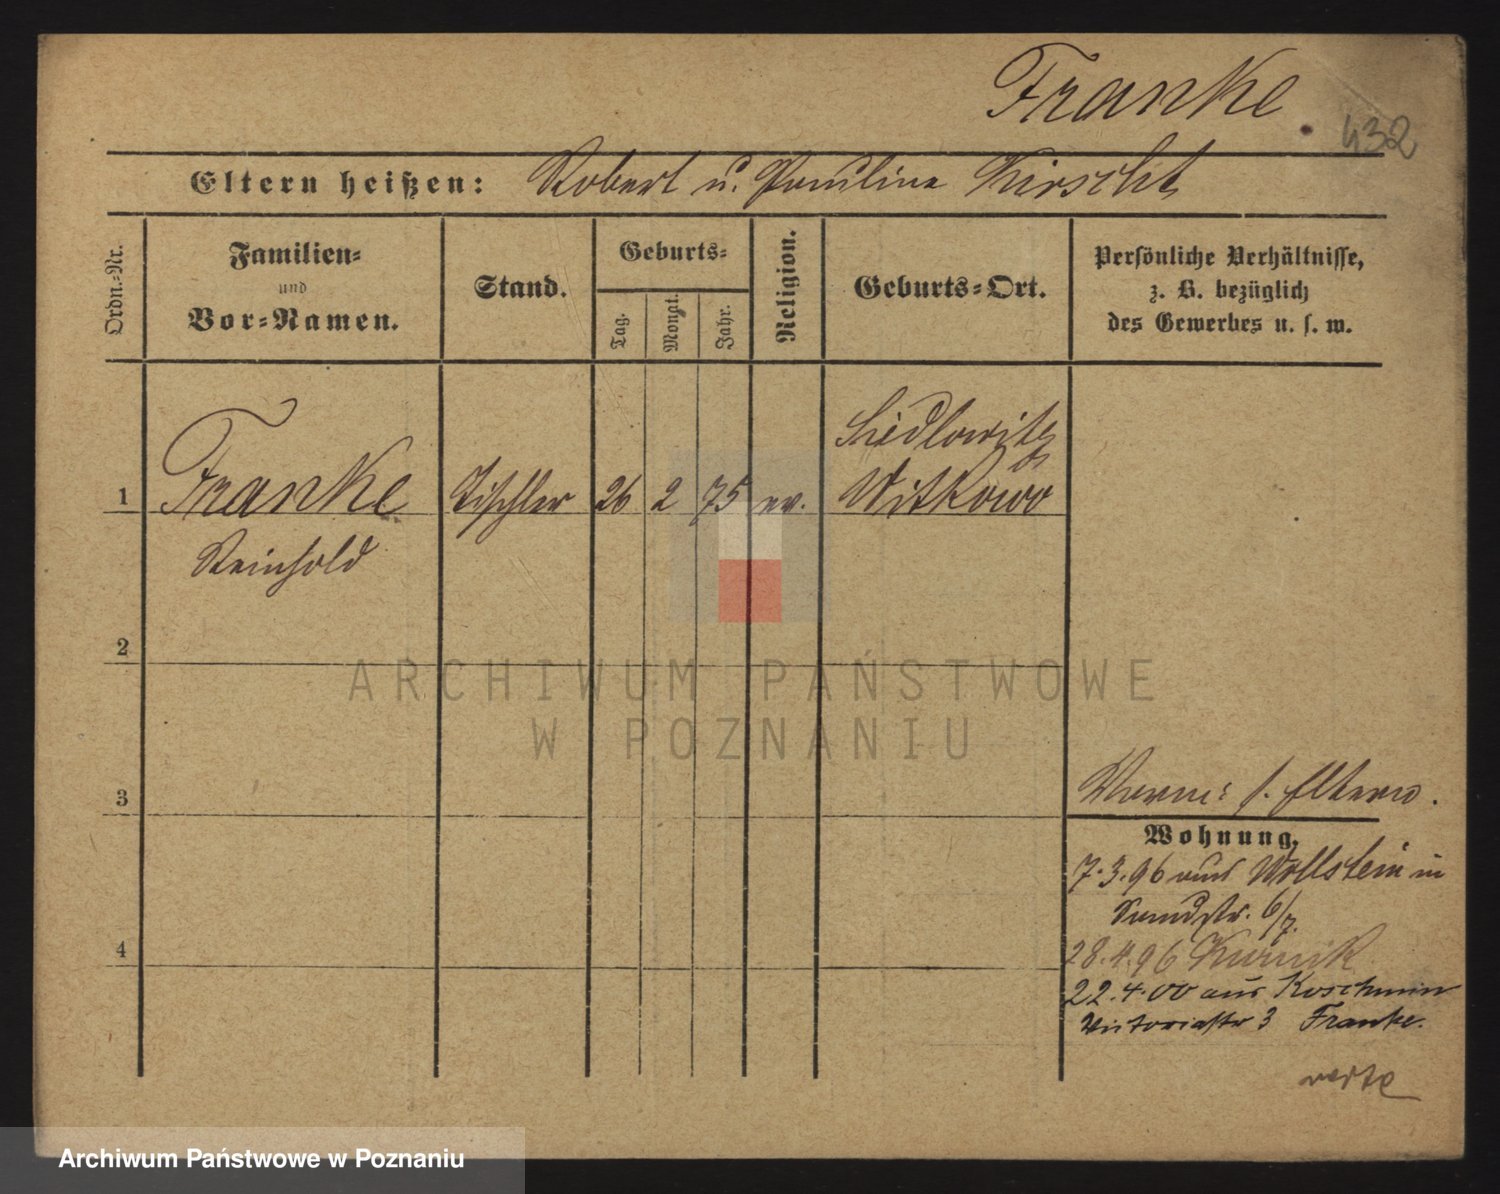 Franke
432
Eltern heißen: Robert u. Pauline Kirscht
Ordn.-Nr.
Familien-
und
Vor-Namen.
Stand.
Geburts-
Tag.
Monat.
Jahr.
Religion.
Geburts-Ort.
Persönliche Verhältnisse,
z. B. bezüglich
des Gewerbes u. s. w.
Siedlowitz
1 Franke Tischler 26 2 75 ev. Witkowo
Reinhold
2
3
4
s. Eltern.
Wohnung.
7.3.96 aus Wollstein in
Sandstr. 6/7.
28.4.96 Kurnik
22.4.00 aus Koschmin
Victoriastr 3 Franke.
verte
ARCHIWUM PAŃSTWOWE
W POZNANIU
Archiwum Państwowe w Poznaniu